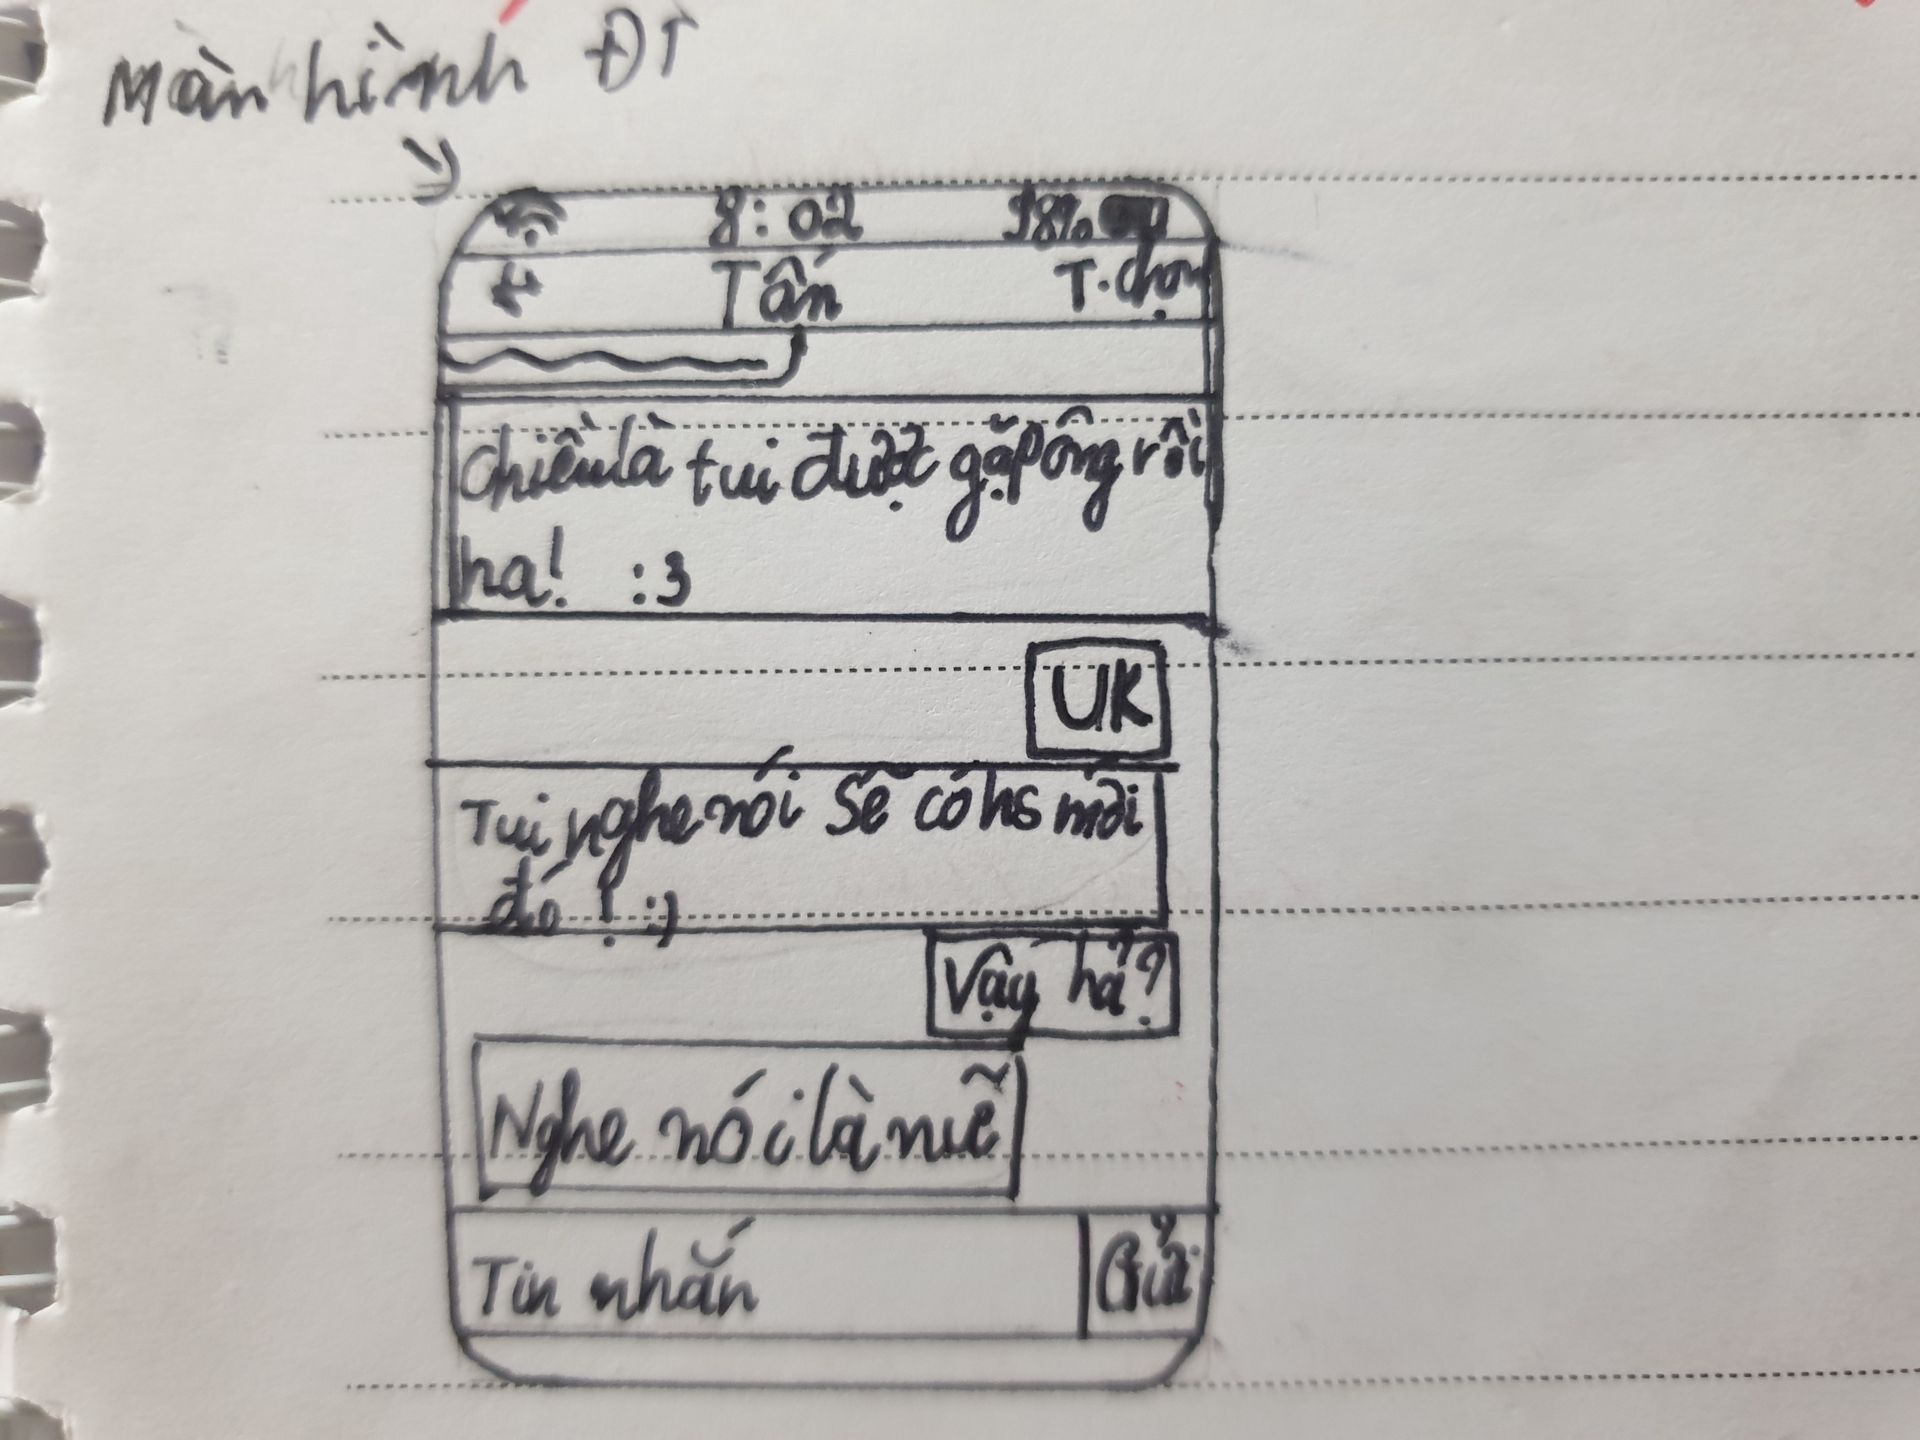 Màn hình ĐT
8:02 98%
Tấn T.chọn
Chiều là tui được gặp ông rồi
ha! :3
UK
Tui nghe nói Sẽ có hs mới
đó ! :)
Vậy hả?
Nghe nói là nữ
Tin nhắn Gửi